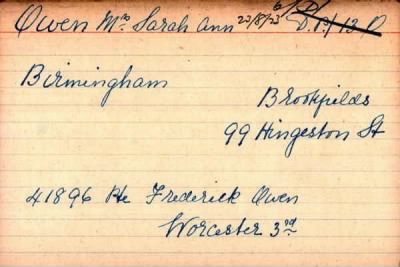 Owen Mrs Sarah Ann 23/8/23
Birmingham
Brookfields
99 Hingeston St
41896 Pte Frederick Owen
Worcester 3rd